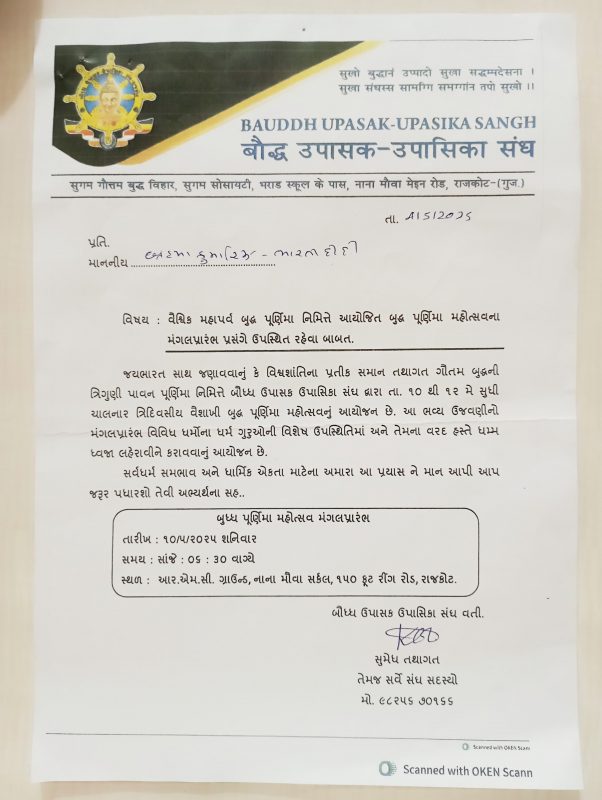 સુખો બુદ્ધાનં ઉપ્પાદો સુખા સદ્ધમ્મદેસના ।
સુખા સંઘસ્સ સામગ્ગિ સમગ્ગાંન તપો સુખો ।।
BAUDDH UPASAK-UPASIKA SANGH
બૌદ્ધ ઉપાસક-ઉપાસિકા સંઘ
સુગમ ગૌત્તમ બુદ્ધ વિહાર, સુગમ સોસાયટી, ભરાડ સ્કૂલ કે પાસ, નાના મૌવા મેઇન રોડ, રાજકોટ-(ગુજ.)
તા.
પ્રતિ.
માનનીય
વિષય : વૈશ્વિક મહાપર્વ બુદ્ધ પૂર્ણિમા નિમિત્તે આયોજિત બુદ્ધ પૂર્ણિમા મહોત્સવના
મંગલપ્રારંભ પ્રસંગે ઉપસ્થિત રહેવા બાબત.
જયભારત સાથ જણાવવાનું કે વિશ્વશાંતિના પ્રતીક સમાન તથાગત ગૌતમ બુદ્ધની
ત્રિગુણી પાવન પૂર્ણિમા નિમિત્તે બૌધ્ધ ઉપાસક ઉપાસિકા સંઘ દ્વારા તા. ૧૦ થી ૧૨ મે સુધી
ચાલનાર ત્રિદિવસીય વૈશાખી બુદ્ધ પૂર્ણિમા મહોત્સવનું આયોજન છે. આ ભવ્ય ઉજવણીનો
મંગલપ્રારંભ વિવિધ ધર્મોના ધર્મ ગુરુઓની વિશેષ ઉપસ્થિતિમાં અને તેમના વરદ હસ્તે ધમ્મ
ધ્વજા લહેરાવીને કરાવવાનું આયોજન છે.
સર્વધર્મ સમભાવ અને ધાર્મિક એકતા માટેના અમારા આ પ્રયાસ ને માન આપી આપ
જરૂર પધારશો તેવી અભ્યર્થના સહ..
બુધ્ધ પૂર્ણિમા મહોત્સવ મંગલપ્રારંભ
તારીખ : ૧૦/૫/૨૦૨૫ શનિવાર
સમય : સાંજે : ૦૬ : ૩૦ વાગ્યે
સ્થળ : આર.એમ.સી. ગ્રાઉન્ડ, નાના મૌવા સર્કલ, ૧૫૦ ફૂટ રીંગ રોડ, રાજકોટ.
બૌધ્ધ ઉપાસક ઉપાસિકા સંઘ વતી.
સુમેધ તથાગત
તેમજ સર્વે સંઘ સદસ્યો
મો. ૯૮૨૫૬ ૭૦૧૬૬
Scanned with OKEN Scann
Scanned with OKEN Scann